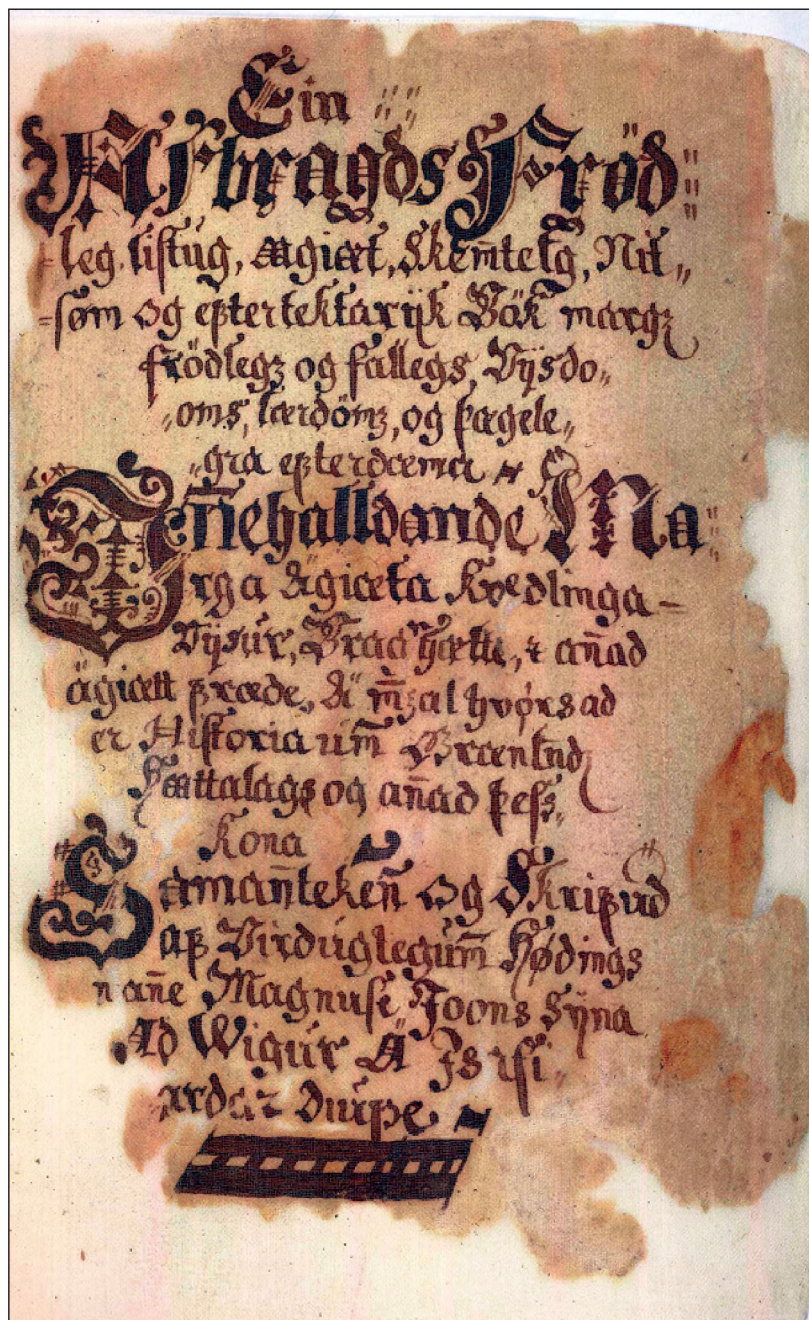 Ein
Afbragds Frød
leg. listug, Ägiæt, Skem̅teleg, Nit
søm og eptertektarijk Bök margz
frödlegz og fallegs, Vijsdo
oms, lærdömz, og þægele
gra epterdæma
Jn̅ehalldande Ma
rga ägiæta Kvedlinga
Vijsur, Braghætte, & an̅ad
ägiætt þræde. Ä m̅zal hvørs ad
er Historia um̅ Grænlnd
Sættalags og an̅ad þess
kona
Saman̅teken̅ og Skripud
ap Virduglegum̅ Hødings
man̅e Magnuse Joons Syna
Ad Wigur Ä Jsafi
ardar Diupe